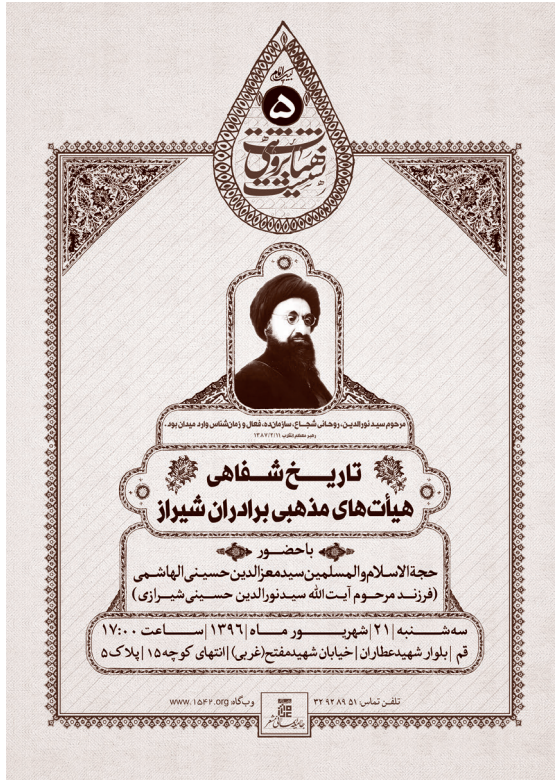 ۵
نشست
مرحوم سید نورالدین، روحانی شجاع، سازمان‌ده، فعال و زمان‌شناس وارد میدان بود.
رهبر معظم انقلاب ۱۳۸۷/۲/۱۱
تاریخ شفاهی
هیأت‌های مذهبی برادران شیراز
باحضور
حجةالاسلام‌والمسلمین سیدمعزالدین حسینی الهاشمی
(فرزند مرحوم آیت‌الله سیدنورالدین حسینی شیرازی)
سه‌شنبه | ۲۱ | شهریور ماه | ۱۳۹۶ | ساعت ۱۷:۰۰
قم | بلوار شهیدعطاران | خیابان شهیدمفتح(غربی) | انتهای کوچه ۱۵ | پلاک ۵
تلفن تماس: ۵۱ ۸۹ ۹۲ ۳۲
وب‌گاه: www.۱۵۴۲.org